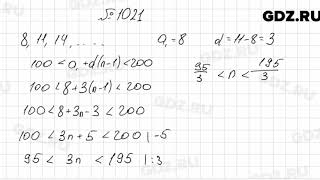 GDZ.RU
№ 1021
8, 11, 14, .....
a₁ = 8 d = 11-8 = 3
100 < a₁ + d(n-1) < 200
100 < 8 + 3(n-1) < 200
100 < 8 + 3n - 3 < 200
100 < 3n + 5 < 200 | -5
95 < 3n < 195 | :3
95/3 < n < 195/3
GDZ.RU